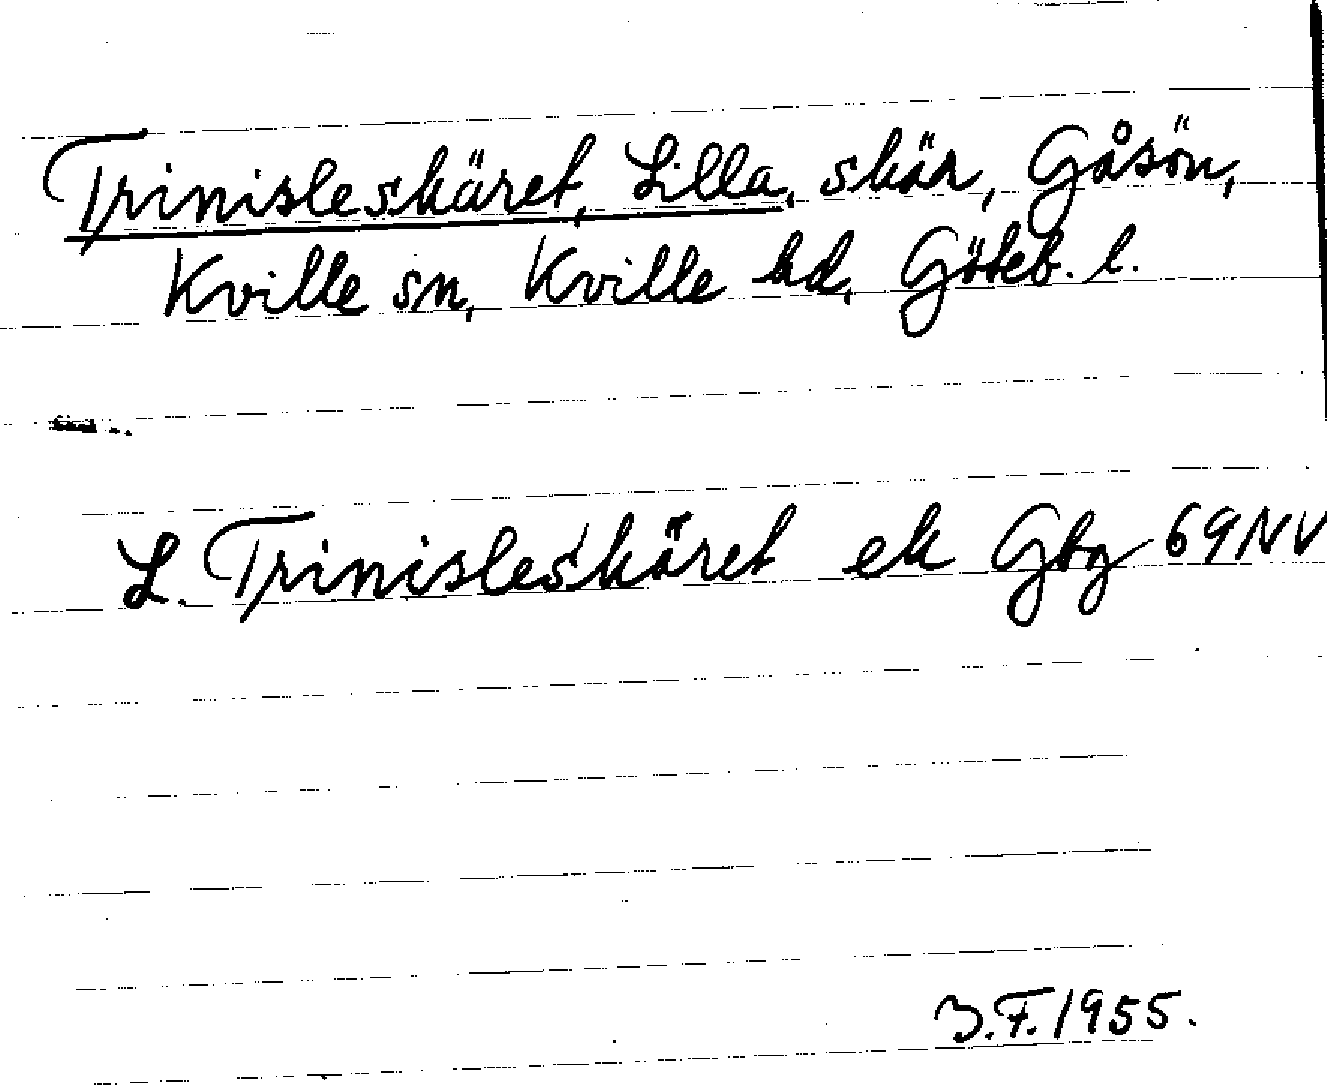 Trinisleskäret, Lilla, skär, Gåsön,
Kville sn, Kville hd, Göteb. l.
L. Trinisleskäret ek Gbg 69NV
J.F. 1955.